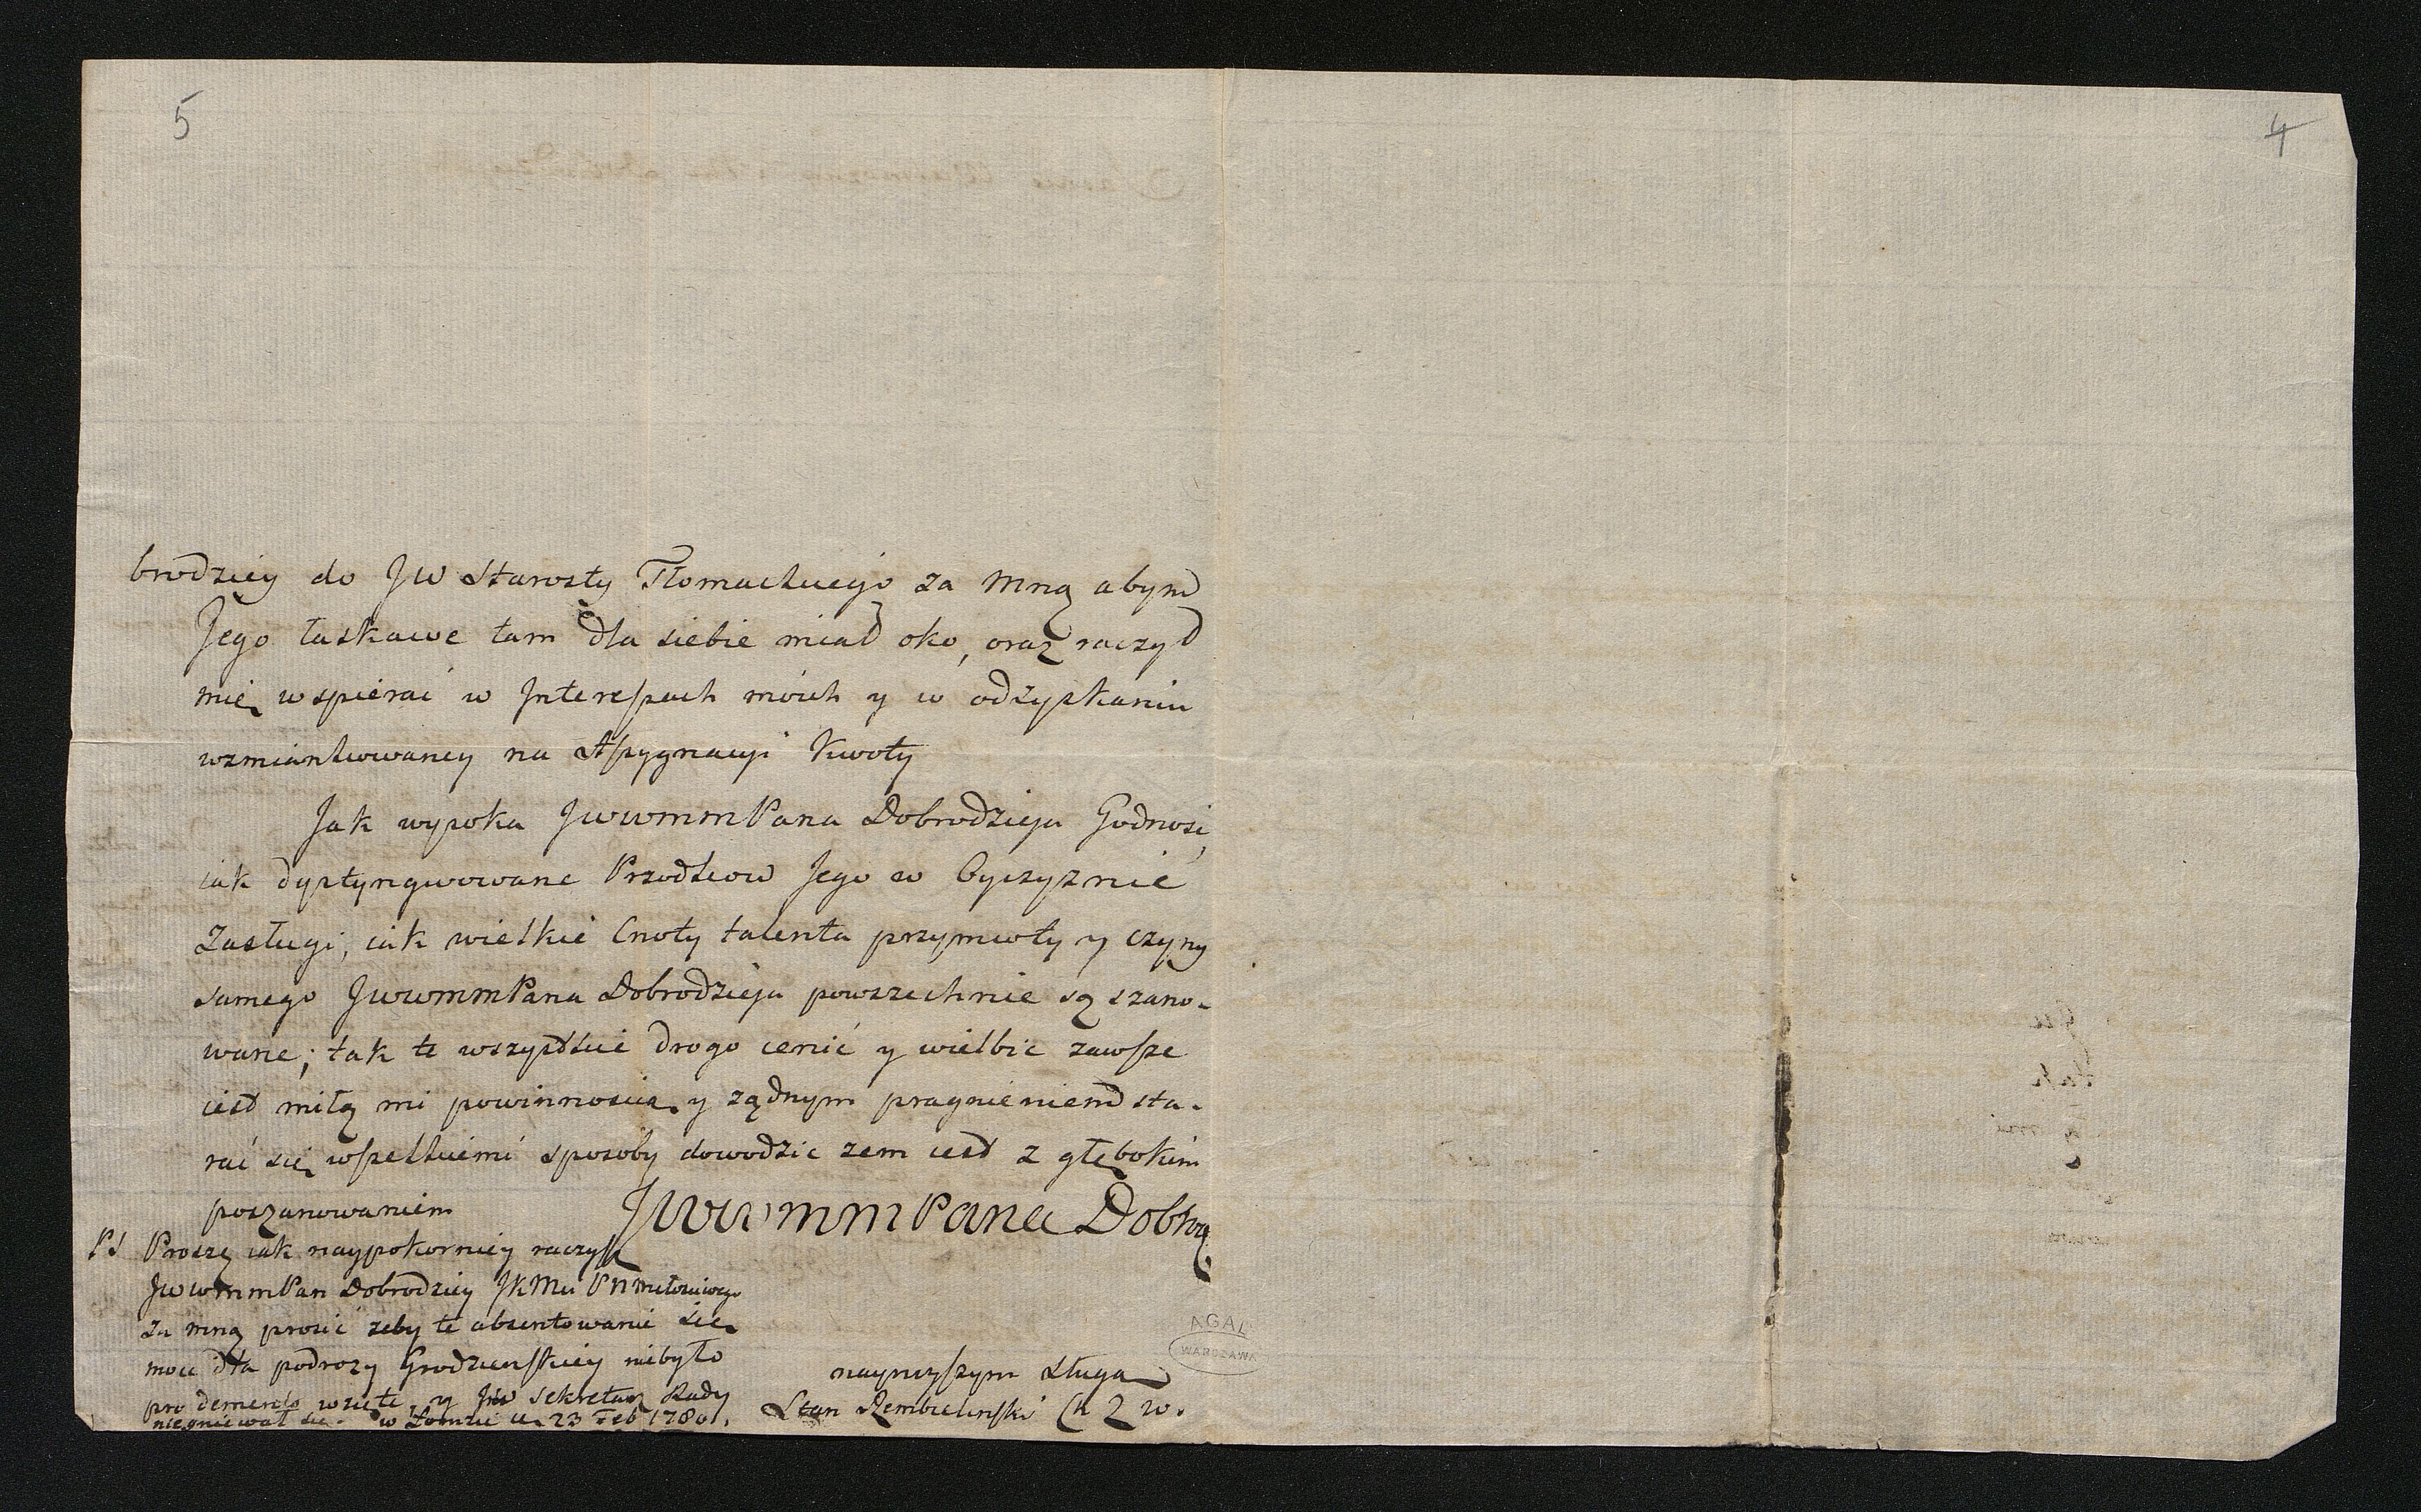 5
4
brodziey do JW Starosty Tłomackiego za mną abym
Jego łaskawe tam dla siebie miał oko, oraz raczył
mię wspierać w Interessach moich y w odzyskaniu
wzmiankowaney na Assygnacyi kwoty
Jak wysoka JWWMMPana Dobrodzieja Godność,
iak dystyngwowane Przodkow Jego w Oyczyznie
Zasługi, iak wielkie Cnoty talenta przymioty y czyny
samego JWWMMPana Dobrodzieja powszechnie są szano-
wane; tak te wszystkie drogo cenić y wielbic zawsze
iest miłą mi powinnoscią y żądnym pragnieniem sta-
rać się wszelkiemi sposoby dowodzic zem iest z głębokim
poszanowaniem
JWWMMPana Dobro
PS Proszę iak naypokorniey raczysz
JWWMMPan Dobrodziey JKMci PNMiłościwego
za mną prosić zeby te absentowanie się
moie dla podrozy Grodzienskiey niebyło
pro demerito wzięte, y JW Sekretarz Rady
niegniewał się. w Łomzie d. 23 Feb 1780.
nayniszym sługą
Stan Rembielinski C Z W.
AGAD
WARSZAWA